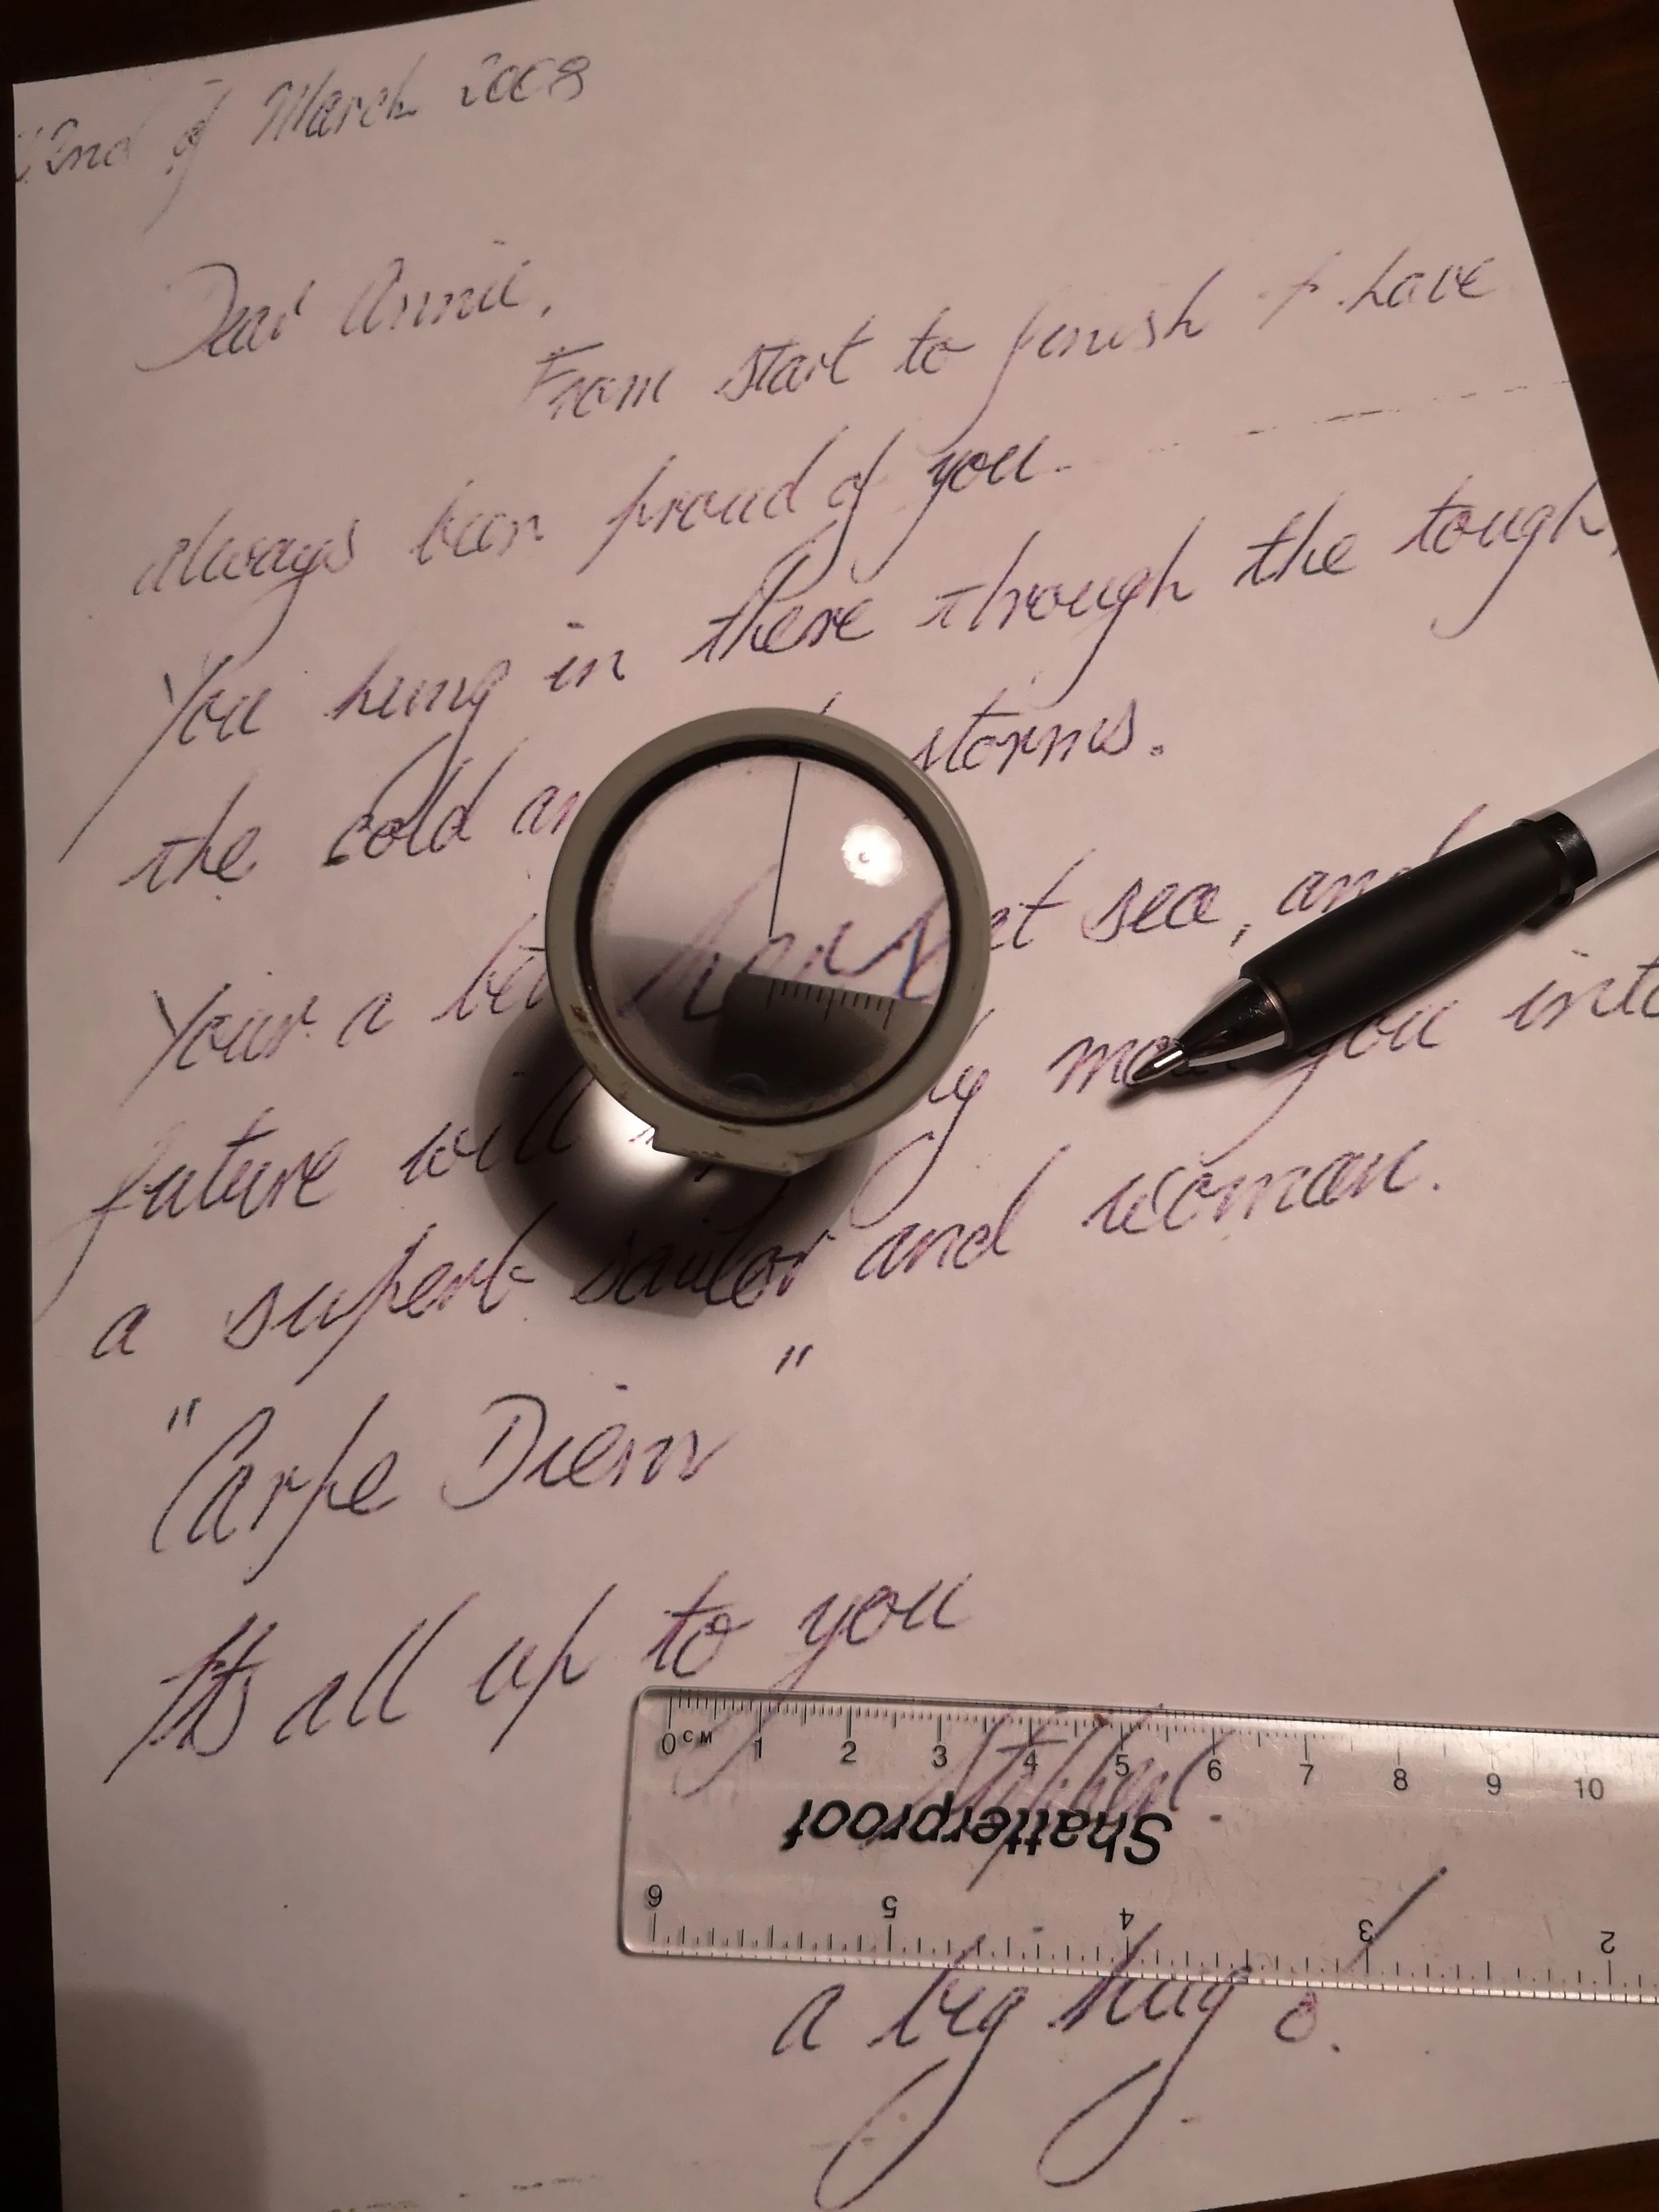 2nd of March 2008
Dear Annie,
From start to finish I have
always been proud of you.
You hung in there through the tough,
the cold an storms.
Your a at sea, and
future will you into
a superb sailor and woman.
"Carpe Diem"
Its all up to you
0 CM 1 2 3 4 5 6 7 8 9 10
Shatterproof
6 5 4 3 2
a big hug